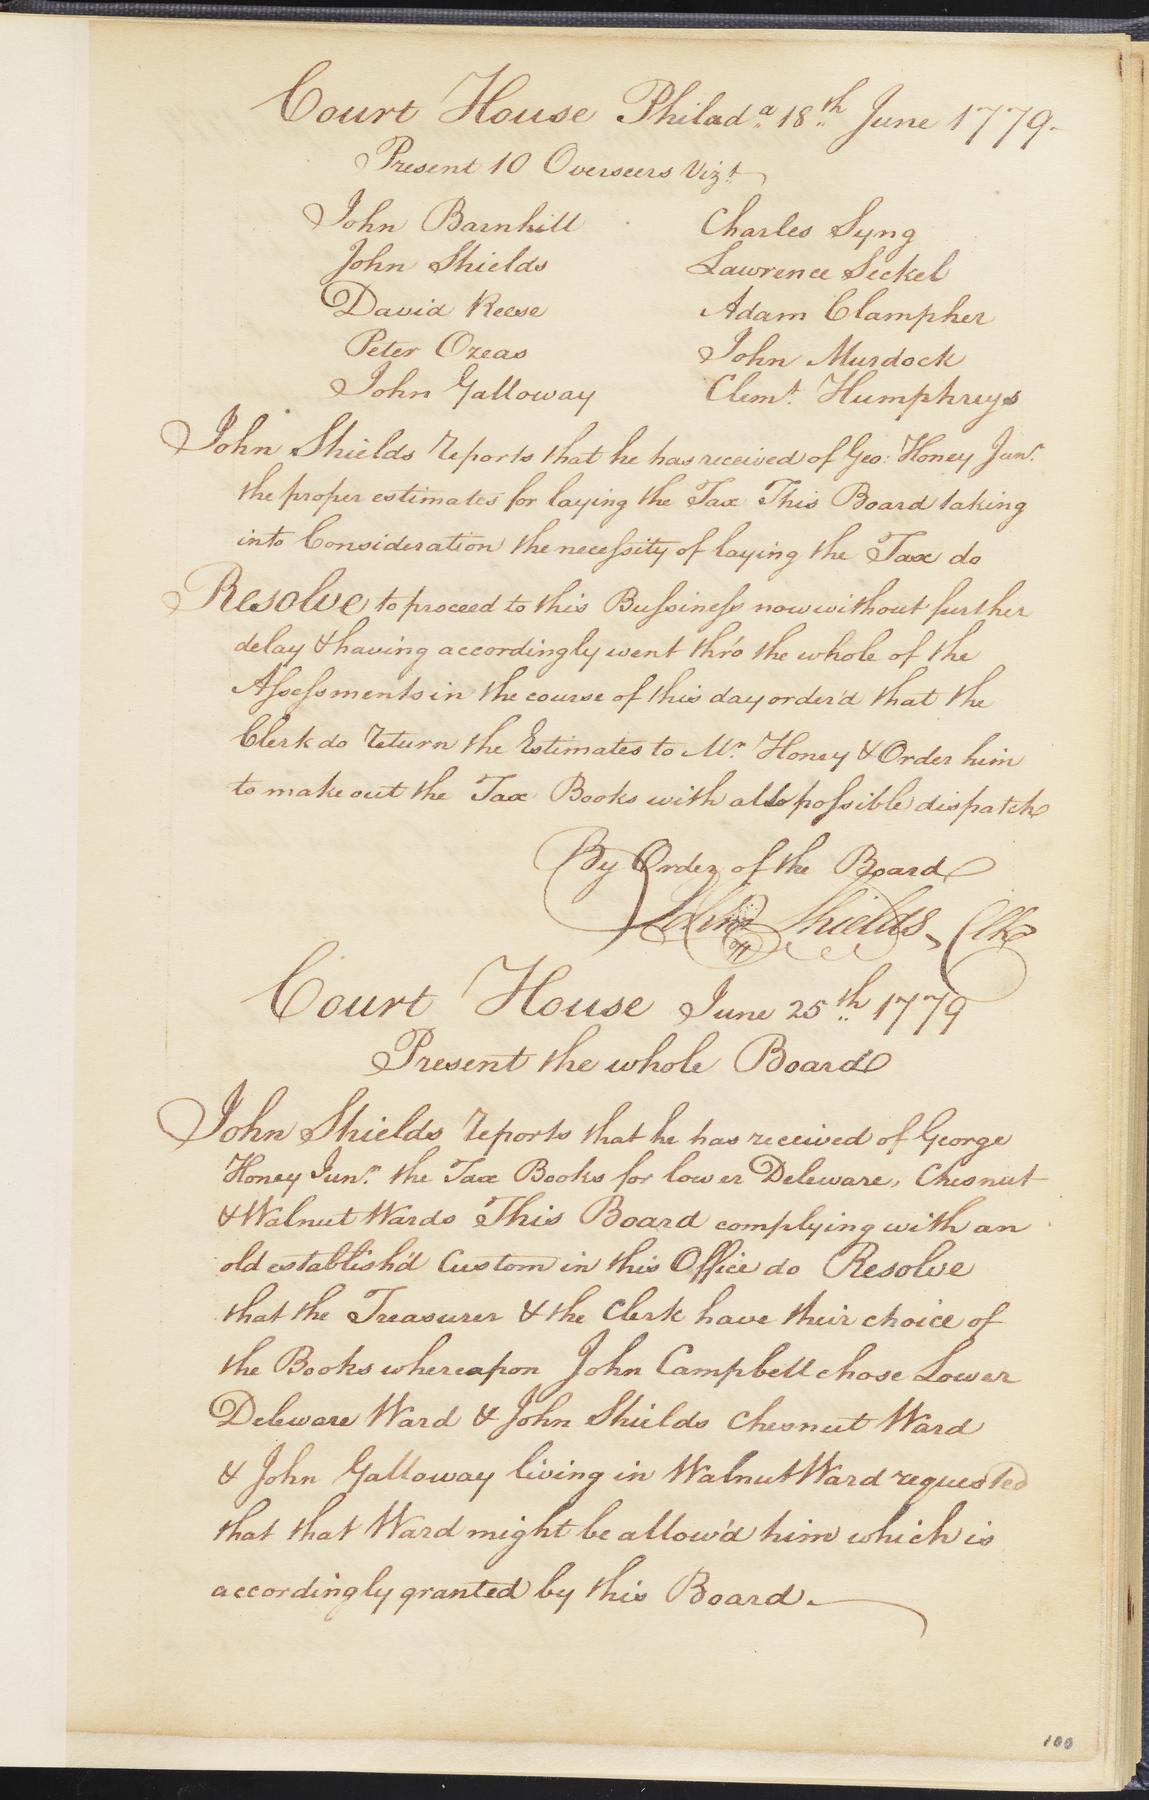 Court House Philada. 18th June 1779.
Present 10 Overseers Vizt.
John Barnhill Charles Syng
John Shields Lawrence Seckel
David Reese Adam Clampher
Peter Ozeas John Murdock
John Galloway Clemt. Humphreys
John Shields reports that he has received of Geo: Honey Junr.
the proper estimates for laying the Tax This Board taking
into Consideration the necessity of laying the Tax do
Resolve to proceed to this Bussiness now without further
delay & having accordingly went thro' the whole of the
Assessments in the course of this day order'd that the
Clerk do return the Estimates to Mr. Honey & Order him
to make out the Tax Books with all possible dispatch
By Order of the Board
John Shields, Clk
Court House June 25th 1779
Present the whole Board
John Shields reports that he has received of George
Honey Junr. the Tax Books for lower Deleware, Chesnut
& Walnut Wards This Board complying with an
old establish'd Custom in this Office do Resolve
that the Treasurer & the Clerk have their choice of
the Books whereapon John Campbell chose Lower
Deleware Ward & John Shields Chesnut Ward
& John Galloway living in Walnut Ward requested
that that Ward might be allow'd him which is
accordingly granted by this Board.
100